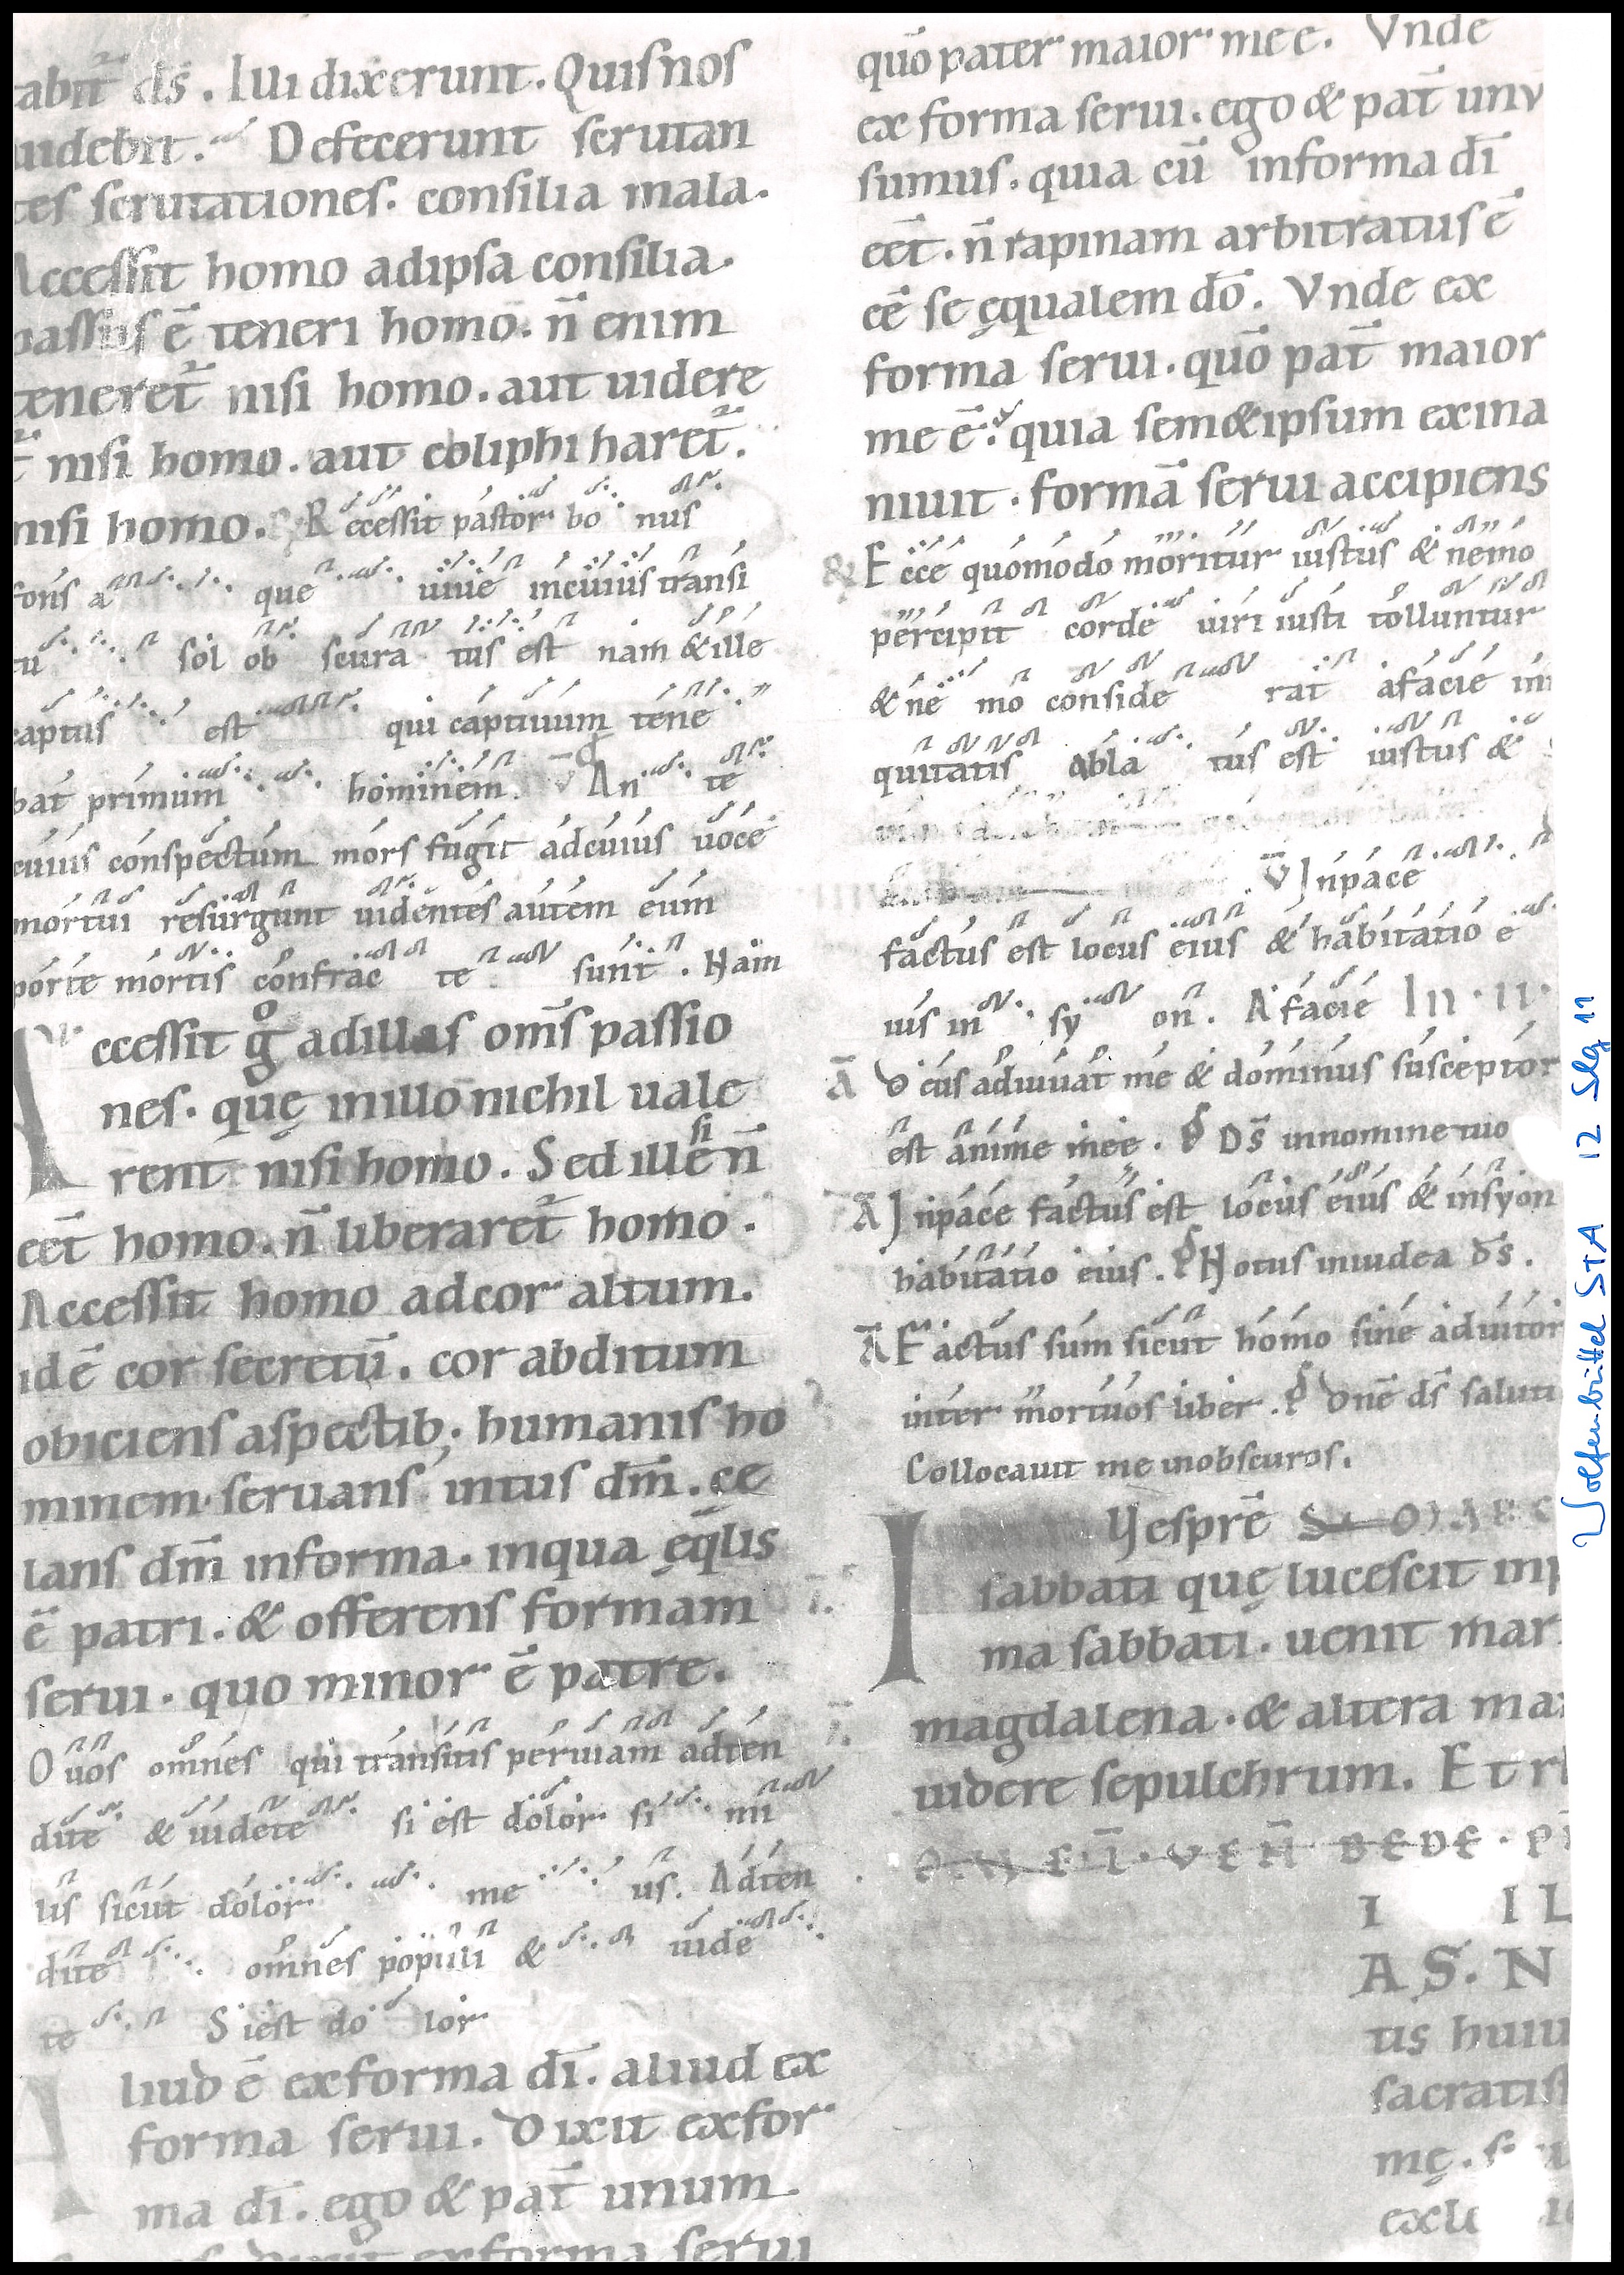 abit᷑ ds̄. Illi dixerunt. Quis nos
uidebit. Defecerunt scrutan
tes scrutationes. consilia mala.
Accessit homo ad ipsa consilia.
passus ē teneri homo. n̄ enim
teneret᷑ nisi homo. aut uidere
t᷑ nisi homo. aut
nisi homo. R Recessit pastor bo nus
fons a que uiue in cuius transi
tu sol ob scura tus est nam & ille
captus est qui captiuum tene
bat primum hominem. V̄ An te
cuius conspectum mors fugit ad cuius uoce
mortui resurgunt uidentes autem eum
porte mortis confrac te sunt. Nam
Accessit gͦ ad illas oms̄ passio
nes. quę in illo nichil uale
rent nisi homo. Sed ille si n̄
eet̄ homo. n̄ liberaret᷑ homo.
Accessit homo ad cor altum.
idē cor secretū. cor abditum
obiciens aspectib; humanis ho
minem. seruans intus dm̄. ce
lans dm̄ in forma. in qua ęq̄lis
ē patri. & offerens formam
serui. quo minor ē patre.
O uos omnes qui transitis per uiam adten
dite & uidete si est dolor si mi
lis sicut dolor me us. Adten
dite omnes populi & uide
te Si est do lor
Aliud ē ex forma dī. aliud ex
forma serui. Dixit ex for
ma dī. ego & pat̄ unum
ex forma serui
quō pater maior me e. Vnde
ex forma serui. ego & pat̄ unu
sumus. quia cū in forma dī
eet̄. n̄ rapinam arbitratus ē
eē se ęqualem dō. Vnde ex
forma serui. quō pat̄ maior
me ē. quia semetipsum exina
niuit. formā serui accipiens
R Ecce quomodo moritur iustus & nemo
percipit corde uiri iusti tolluntur
& ne mo conside rat a facie ini
quitatis abla tus est iustus &
V̄ In pace
factus est locus eius & habitatio e
ius in sy on. A facie In. II.
Ā Deus adiuuat me & dominus susceptor
est anime mee. Ds̄ in nomine tuo
Ā In pace factus est locus eius & in syon
habitatio eius. Notus in iudea ds̄.
Ā Factus sum sicut homo sine adiutor
inter mortuos liber. Dn̄e ds̄ saluti
Collocauit me in obscuros.
Vesprē
sabbati quę lucescit in p
ma sabbati. uenit mar
magdalena. & altera ma
uidere sepulchrum. Et rl
BEDE. P
I IL
AS. N
tis huiu
sacratis
mę.
excl
Wolfenbüttel STA 12 Slg 11